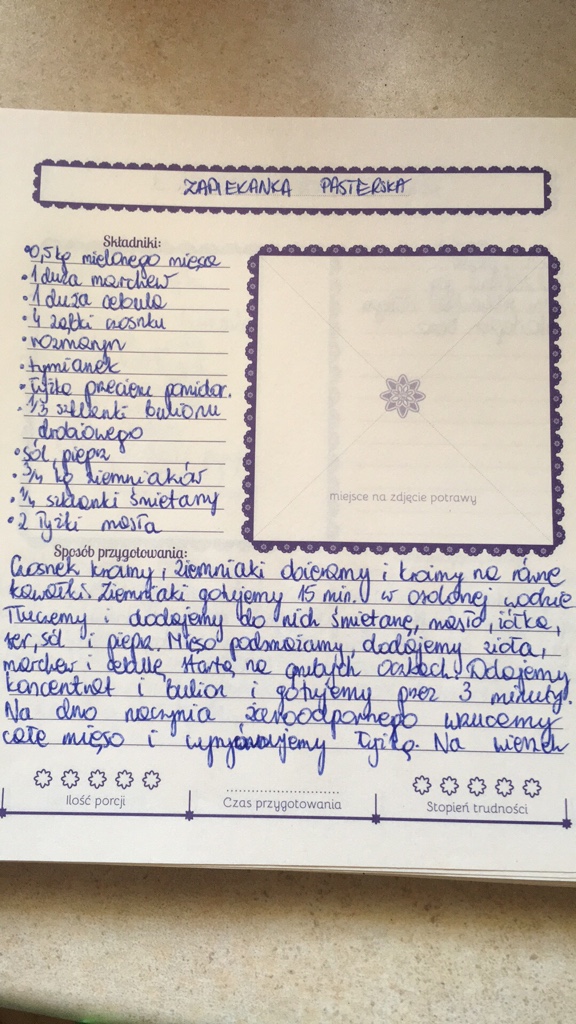 ZAPIEKANKA PASTERSKA
Składniki:
• 0,5 kg mielonego mięsa
• 1 duża marchew
• 1 duża cebula
• 4 ząbki czosnku
• rozmaryn
• tymianek
• łyżka przecieru pomidor.
• 1/3 szklanki bulionu
drobiowego
• sól, pieprz
• 3/4 kg ziemniaków
• 1/4 szklanki śmietany
• 2 łyżki masła
miejsce na zdjęcie potrawy
Sposób przygotowania:
Czosnek kroimy, ziemniaki obieramy i kroimy na równe
kawałki. Ziemniaki gotujemy 15 min. w osolonej wodzie
Tłuczemy i dodajemy do nich śmietanę, masło, żółtka,
ser, sól i pieprz. Mięso podsmażamy, dodajemy zioła,
marchew i cebulę startą na grubych oczkach. Dodajemy
koncentrat i bulion i gotujemy przez 3 minuty.
Na dno naczynia żaroodpornego wrzucemy
całe mięso i wyrównujemy łyżką. Na wierzch
Ilość porcji
Czas przygotowania
Stopień trudności